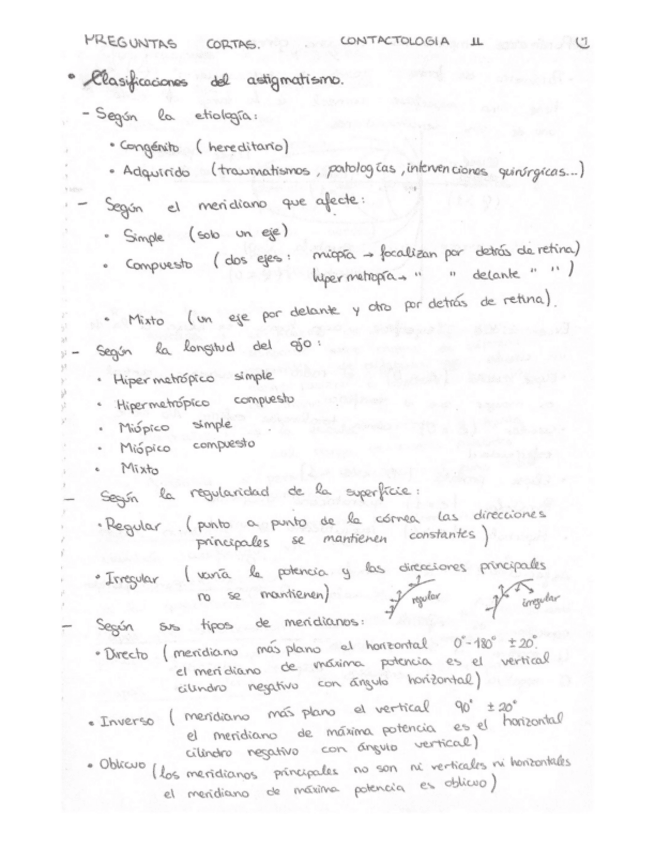 PREGUNTAS CORTAS. CONTACTOLOGIA II 1
• Clasificaciones del astigmatismo.
- Según la etiología:
• Congénito (hereditario)
• Adquirido (traumatismos, patologías, intervenciones quirúrgicas...)
- Según el meridiano que afecte:
• Simple (solo un eje)
• Compuesto (dos ejes: miopía → focalizan por detrás de retina)
hipermetropía → " " delante " " )
• Mixto (un eje por delante y otro por detrás de retina).
- Según la longitud del ojo:
• Hipermetrópico simple
• Hipermetrópico compuesto
• Miópico simple
• Miópico compuesto
• Mixto
- Según la regularidad de la superficie:
• Regular (punto a punto de la córnea las direcciones
principales se mantienen constantes)
• Irregular (varía la potencia y las direcciones principales
no se mantienen) regular irregular
- Según sus tipos de meridianos:
• Directo (meridiano más plano el horizontal 0°-180° ±20°.
el meridiano de máxima potencia es el vertical
cilindro negativo con ángulo horizontal)
• Inverso (meridiano más plano el vertical 90° ±20°
el meridiano de máxima potencia es el horizontal
cilindro negativo con ángulo vertical)
• Oblicuo (los meridianos principales no son ni verticales ni horizontales
el meridiano de máxima potencia es oblicuo)